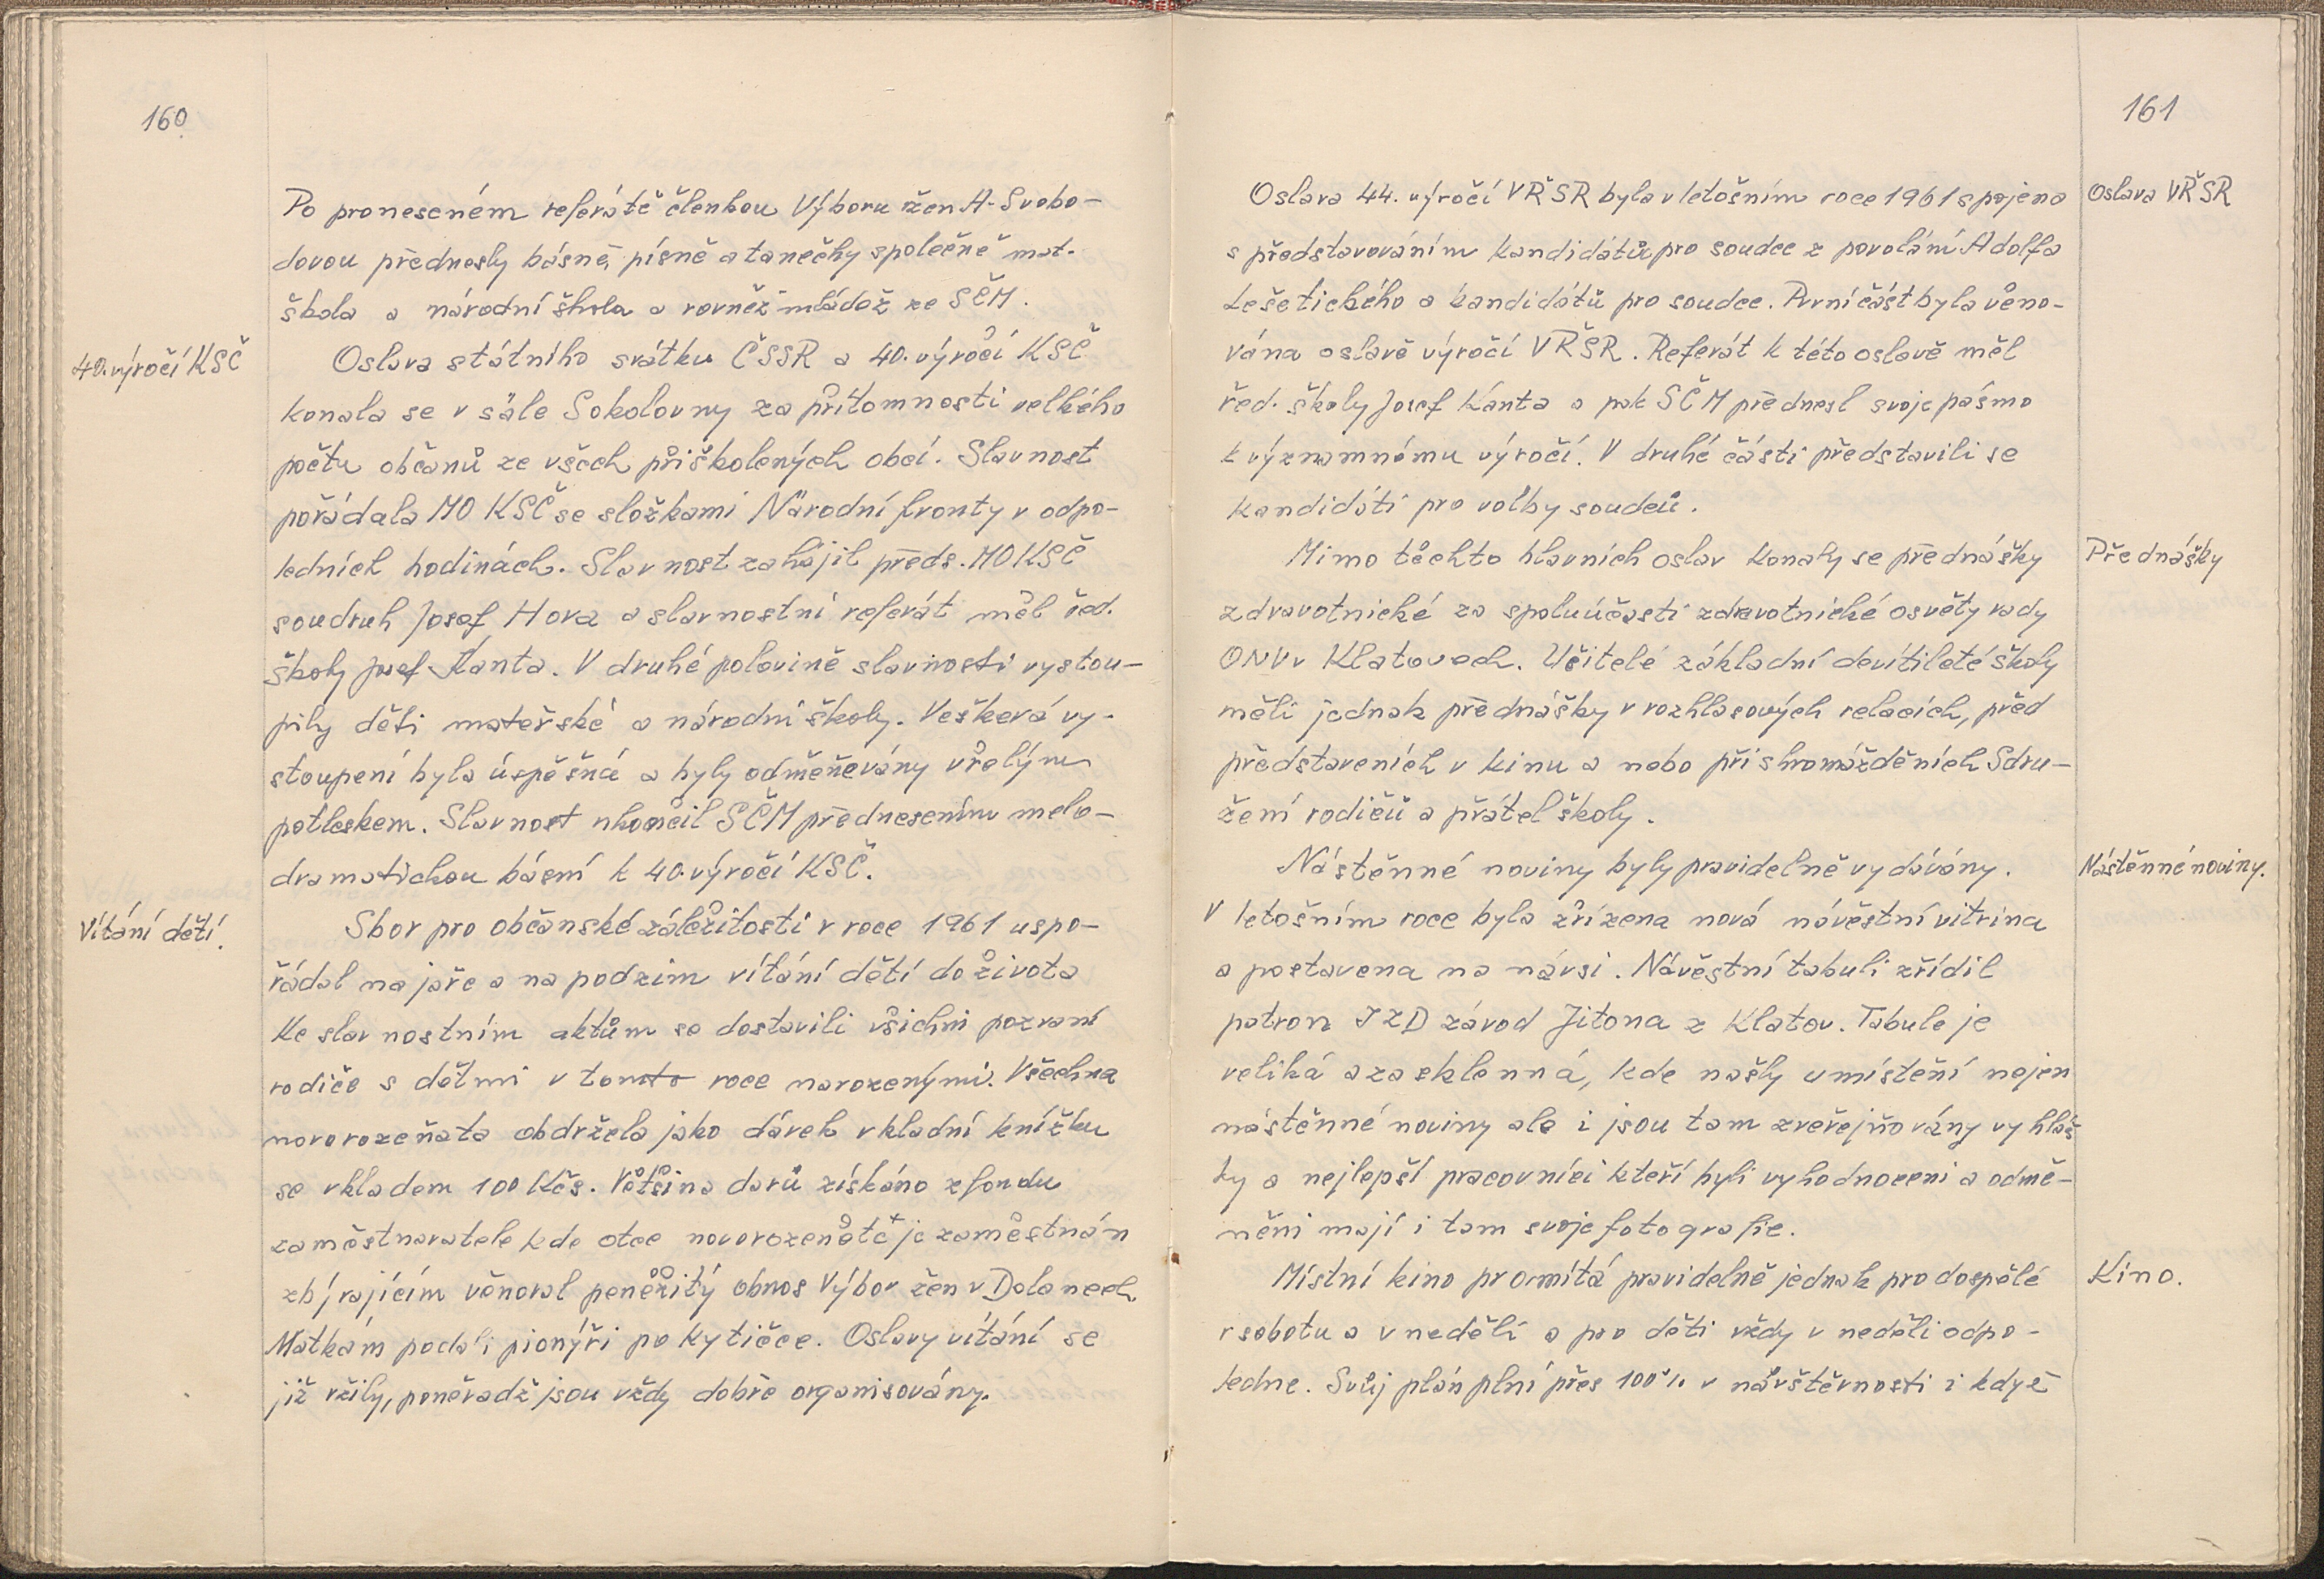 160
Po proneseném referátě členkou Výboru žen A. Svobo-
dovou přednesly básně, písně a tanečky společně mat.
škola a národní škola a rovněž mládež ze SČM.
40. výročí KSČ
Oslava státního svátku ČSSR a 40. výročí KSČ
konala se v sále Sokolovny za přítomnosti velkého
počtu občanů ze všech přiškolených obcí. Slavnost
pořádala MO KSČ se složkami Národní fronty v odpo-
ledních hodinách. Slavnost zahájil předs. MO KSČ
soudruh Josef Hora a slavnostní referát měl řed.
školy Josef Kanta. V druhé polovině slavnosti vystou-
pily děti mateřské a národní školy. Veškerá vy-
stoupení byla úspěšná a byly odměňovány vřelým
potleskem. Slavnost ukončil SČM přednesením melo-
dramatickou básní k 40. výročí KSČ.
Vítání dětí.
Sbor pro občanské záležitosti v roce 1961 uspo-
řádal na jaře a na podzim vítání dětí do života
Ke slavnostním aktům se dostavili všichni pozvaní
rodiče s dětmi v tomto roce narozenými. Všechna
novorozeňata obdržela jako dárek vkladní knížku
se vkladem 100 Kčs. Většina darů získáno z fondu
zaměstnavatele kde otec novorozeněte je zaměstnán
zbývajícím věnoval peněžitý obnos Výbor žen v Dolanech
Matkám podali pionýři po kytičce. Oslavy vítání se
již vžily, poněvadž jsou vždy dobře organisovány.
161
Oslava VŘSR
Oslava 44. výročí VŘSR byla v letošním roce 1961 spojena
s představováním kandidátů pro soudce z povolání Adolfa
Lešetického a kandidátů pro soudce. První část byla věno-
vána oslavě výročí VŘSR. Referát k této oslavě měl
řed. školy Josef Kanta a pak SČM přednesl svoje pásmo
k významnému výročí. V druhé části představili se
kandidáti pro volby soudců.
Přednášky
Mimo těchto hlavních oslav konaly se přednášky
zdravotnické za spoluúčasti zdravotnické osvěty rady
ONV v Klatovech. Učitelé základní devítileté školy
měli jednak přednášky v rozhlasových relacích, před
představeních v kinu a nebo při shromážděních Sdru-
žení rodičů a přátel školy.
Nástěnné noviny.
Nástěnné noviny byly pravidelně vydávány.
V letošním roce byla zřízena nová návěstní vitrina
a postavena na návsi. Návěstní tabuli zřídil
patron JZD závod Jitona z Klatov. Tabule je
veliká a zasklenná, kde našly umístění nejen
nástěnné noviny ale i jsou tam zveřejňovány vyhláš
ky a nejlepší pracovníci kteří byli vyhodnoceni a odmě-
něni mají i tam svoje fotografie.
Kino.
Místní kino promítá pravidelně jednak pro dospělé
v sobotu a v neděli a pro děti vždy v neděli odpo-
ledne. Svůj plán plní přes 100% v návštěvnosti i když